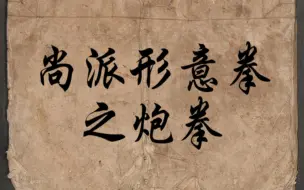 尚派形意拳
之炮拳